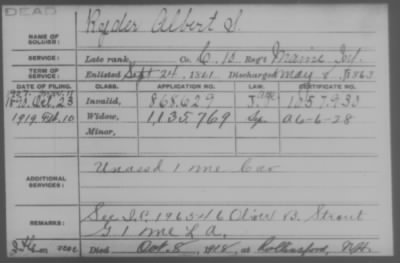 DEAD
NAME OF SOLDIER: Ryder Albert S.
SERVICE: Late rank, Co. C, 10 Reg't Maine Inf.
TERM OF SERVICE: Enlisted Sept 24, 1861 Discharged May 8, 1863
DATE OF FILING. CLASS. APPLICATION NO. LAW. CERTIFICATE NO.
Oct. 23 Invalid, 868.629 1057.933
1919. Feb. 10 Widow, 1,135,769 A6-6-28
Minor,
ADDITIONAL SERVICES: Unassd 1 Me Cav
REMARKS: See I.C. 196546 Oliver B. Strout
G 1 Me L A.
Died Oct. 8, 1918, at Rollinsford, N.H.